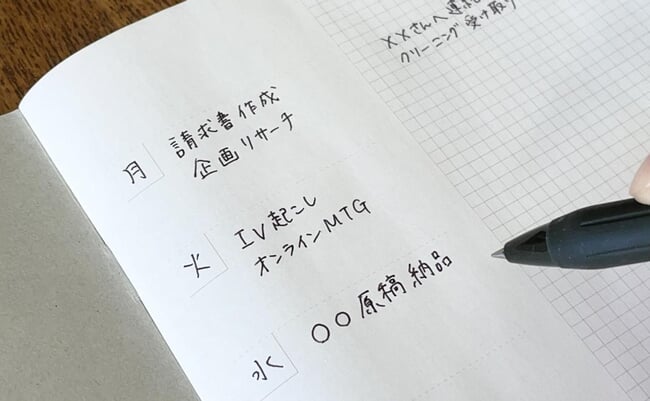 月
請求書作成
企画リサーチ
火
IV起こし
オンラインMTG
水
〇〇原稿納品
××さんへ連絡
クリーニング受け取り